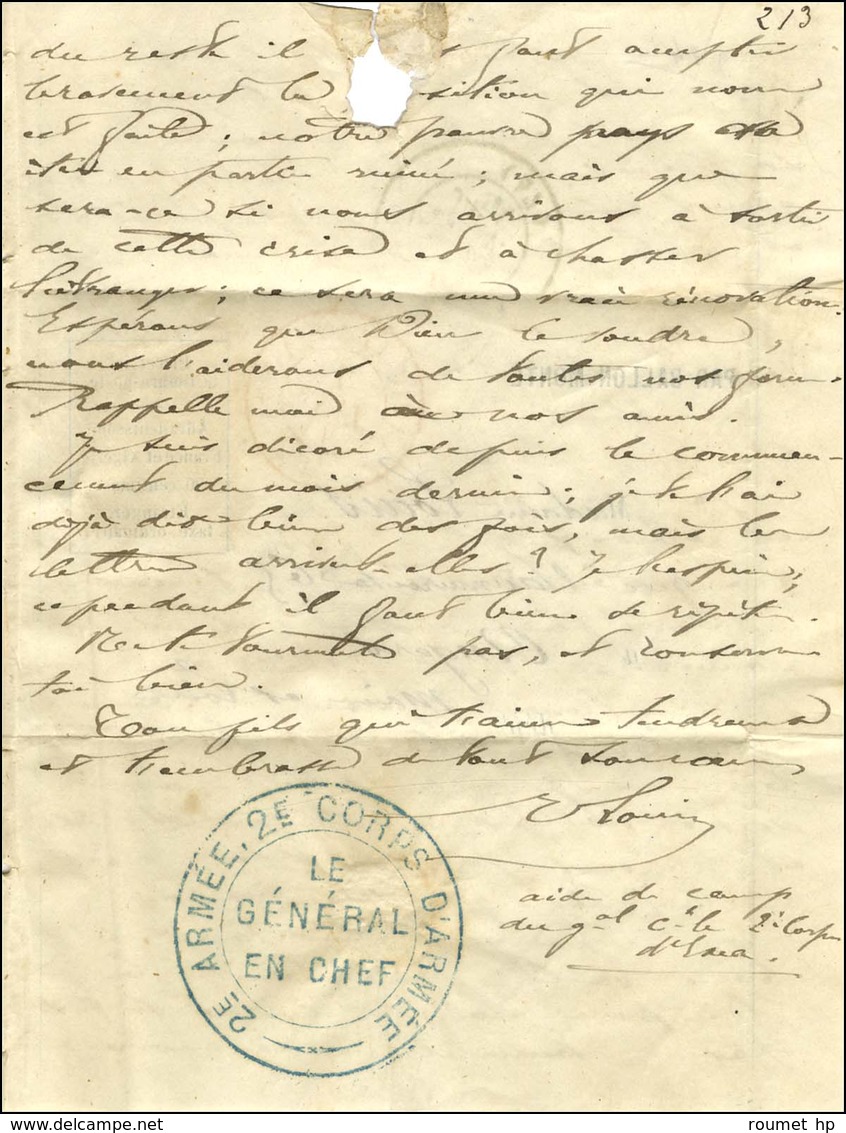 213
du reste il faut accepter
bravement la sition qui nous
est faite ; notre pauvre pays
en partie ruiné ; mais que
sera-ce si nous arrivons à sortir
de cette crise et à chasser
l'étranger ; ce sera une vraie rénovation.
Espérons que Dieu le voudra,
nous l'aiderons de toutes nos forces.
Rappelle moi à nos amis.
Je suis décoré depuis le commen-
cement du mois dernier ; je te l'ai
déjà dit bien des fois, mais les
lettres arrivent-elles ? Je l'espère ;
cependant il faut bien se répéter.
Ne te tourmente pas, et conserve
toi bien.
Ton fils qui t'aime tendrement
et t'embrasse de tout son cœur
aide de camp
du gal ct le 2e Corps
d'Exea.
2E ARMÉE, 2E CORPS D'ARMÉE
LE
GÉNÉRAL
EN CHEF
PAR BALLON MONTÉ
roumet hp